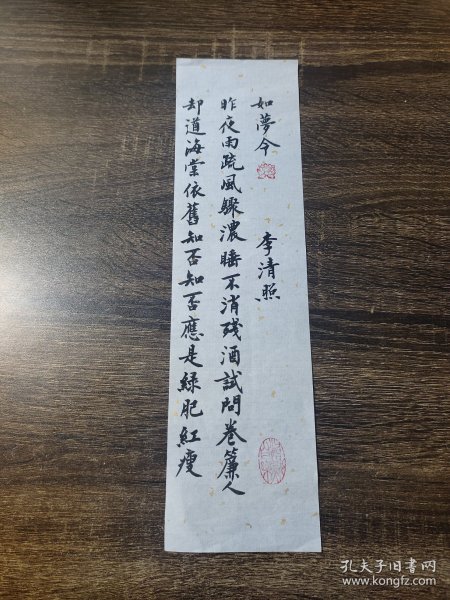 如夢令 李清照
昨夜雨疏風驟濃睡不消殘酒試問卷簾人
却道海棠依舊知否知否應是緑肥紅瘦
孔夫子旧书网
www.kongfz.com